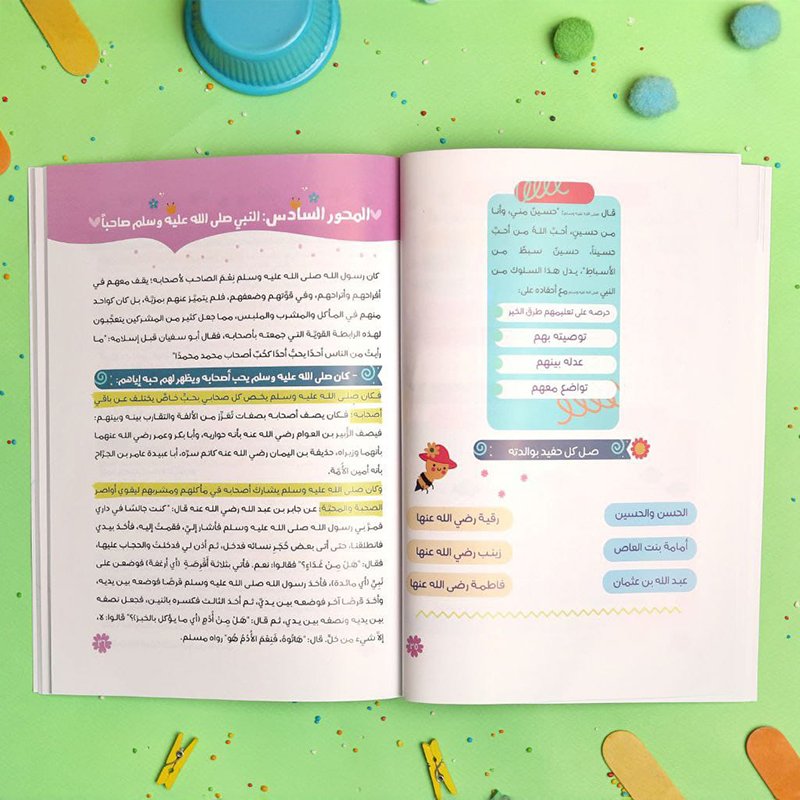 قال صلى الله عليه وسلم "حسينٌ مني، وأنا
من حسينٍ، أحبَّ اللهُ من أحبَّ
حسيناً، حسينٌ سبطٌ من
الأسباط"، يدل هذا السلوك من
النبي صلى الله عليه وسلم مع أحفاده على:
حرصه على تعليمهم طرق الخير
توصيته بهم
عدله بينهم
تواضع معهم
صل كل حفيد بوالدته
الحسن والحسين
رقية رضي الله عنها
أمامة بنت العاص
زينب رضي الله عنها
عبد الله بن عثمان
فاطمة رضي الله عنها
المحور السادس: النبي صلى الله عليه وسلم صاحباً
كان رسول الله صلى الله عليه وسلم نِعْمَ الصاحب لأصحابه؛ يقف معهم في
أفراحهم وأتراحهم، وفي قوّتهم وضعفهم، فلم يتميّز عنهم بمزيّة، بل كان كواحد
منهم في المأكل والمشرب والملبس، مما جعل كثير من المشركين يتعجّبون
لهذه الرابطة القويّة التي جمعته بأصحابه، فقال أبو سفيان قبل إسلامه: "ما
رأيتُ من الناس أحدًا يحبُّ أحدًا كحُبّ أصحاب محمد محمدًا"
- كان صلى الله عليه وسلم يحب أصحابه ويظهر لهم حبه إياهم:
فكان صلى الله عليه وسلم يخص كل صحابي بحبٍّ خاصٍّ يختلف عن باقي
أصحابه؛ فكان يصف أصحابه بصفات تُعزّز من الألفة والتقارب بينه وبينهم:
فيصف الزُّبير بن العوام رضي الله عنه بأنه حواريه، وأبا بكر وعمر رضي الله عنهما
بأنهما وزيراه، حذيفة بن اليمان رضي الله عنه كاتم سرّه، أبا عبيدة عامر بن الجرّاح
بأنه أمين الأُمّة.
وكان صلى الله عليه وسلم يشارك أصحابه في مأكلهم ومشربهم ليقوي أواصر
الصحبة والمحبّة: عن جابر بن عبد الله رضي الله عنه قال: "كنت جالسًا في داري
فمرّ بي رسول الله صلى الله عليه وسلم فأشار إليّ، فقمتُ إليه، فأخذ بيدي
فانطلقنا، حتى أتى بعض حُجَرِ نسائه فدخل، ثم أذن لي فدخلتُ والحجاب عليها،
فقال: "هَلْ مِنْ غَدَاءٍ؟" فقالوا: نعم. فأُتي بثلاثة أَقْرِصَةٍ (أي أرغفة) فوضعن على
نَبِيٍّ (أي مائدة)، فأخذ رسول الله صلى الله عليه وسلم قرصًا فوضعه بين يديه،
وأخذ قرصًا آخر فوضعه بين يديّ، ثم أخذ الثالث فكسره باثنين، فجعل نصفه
بين يديه ونصفه بين يدي، ثم قال: "هَلْ مِنْ أُدُمٍ (أي ما يؤكل بالخبز)؟" قالوا: لا،
إلاّ شيءٌ من خلّ. قال: "هَاتُوهُ، فَنِعْمَ الأُدْمُ هُوَ" رواه مسلم.